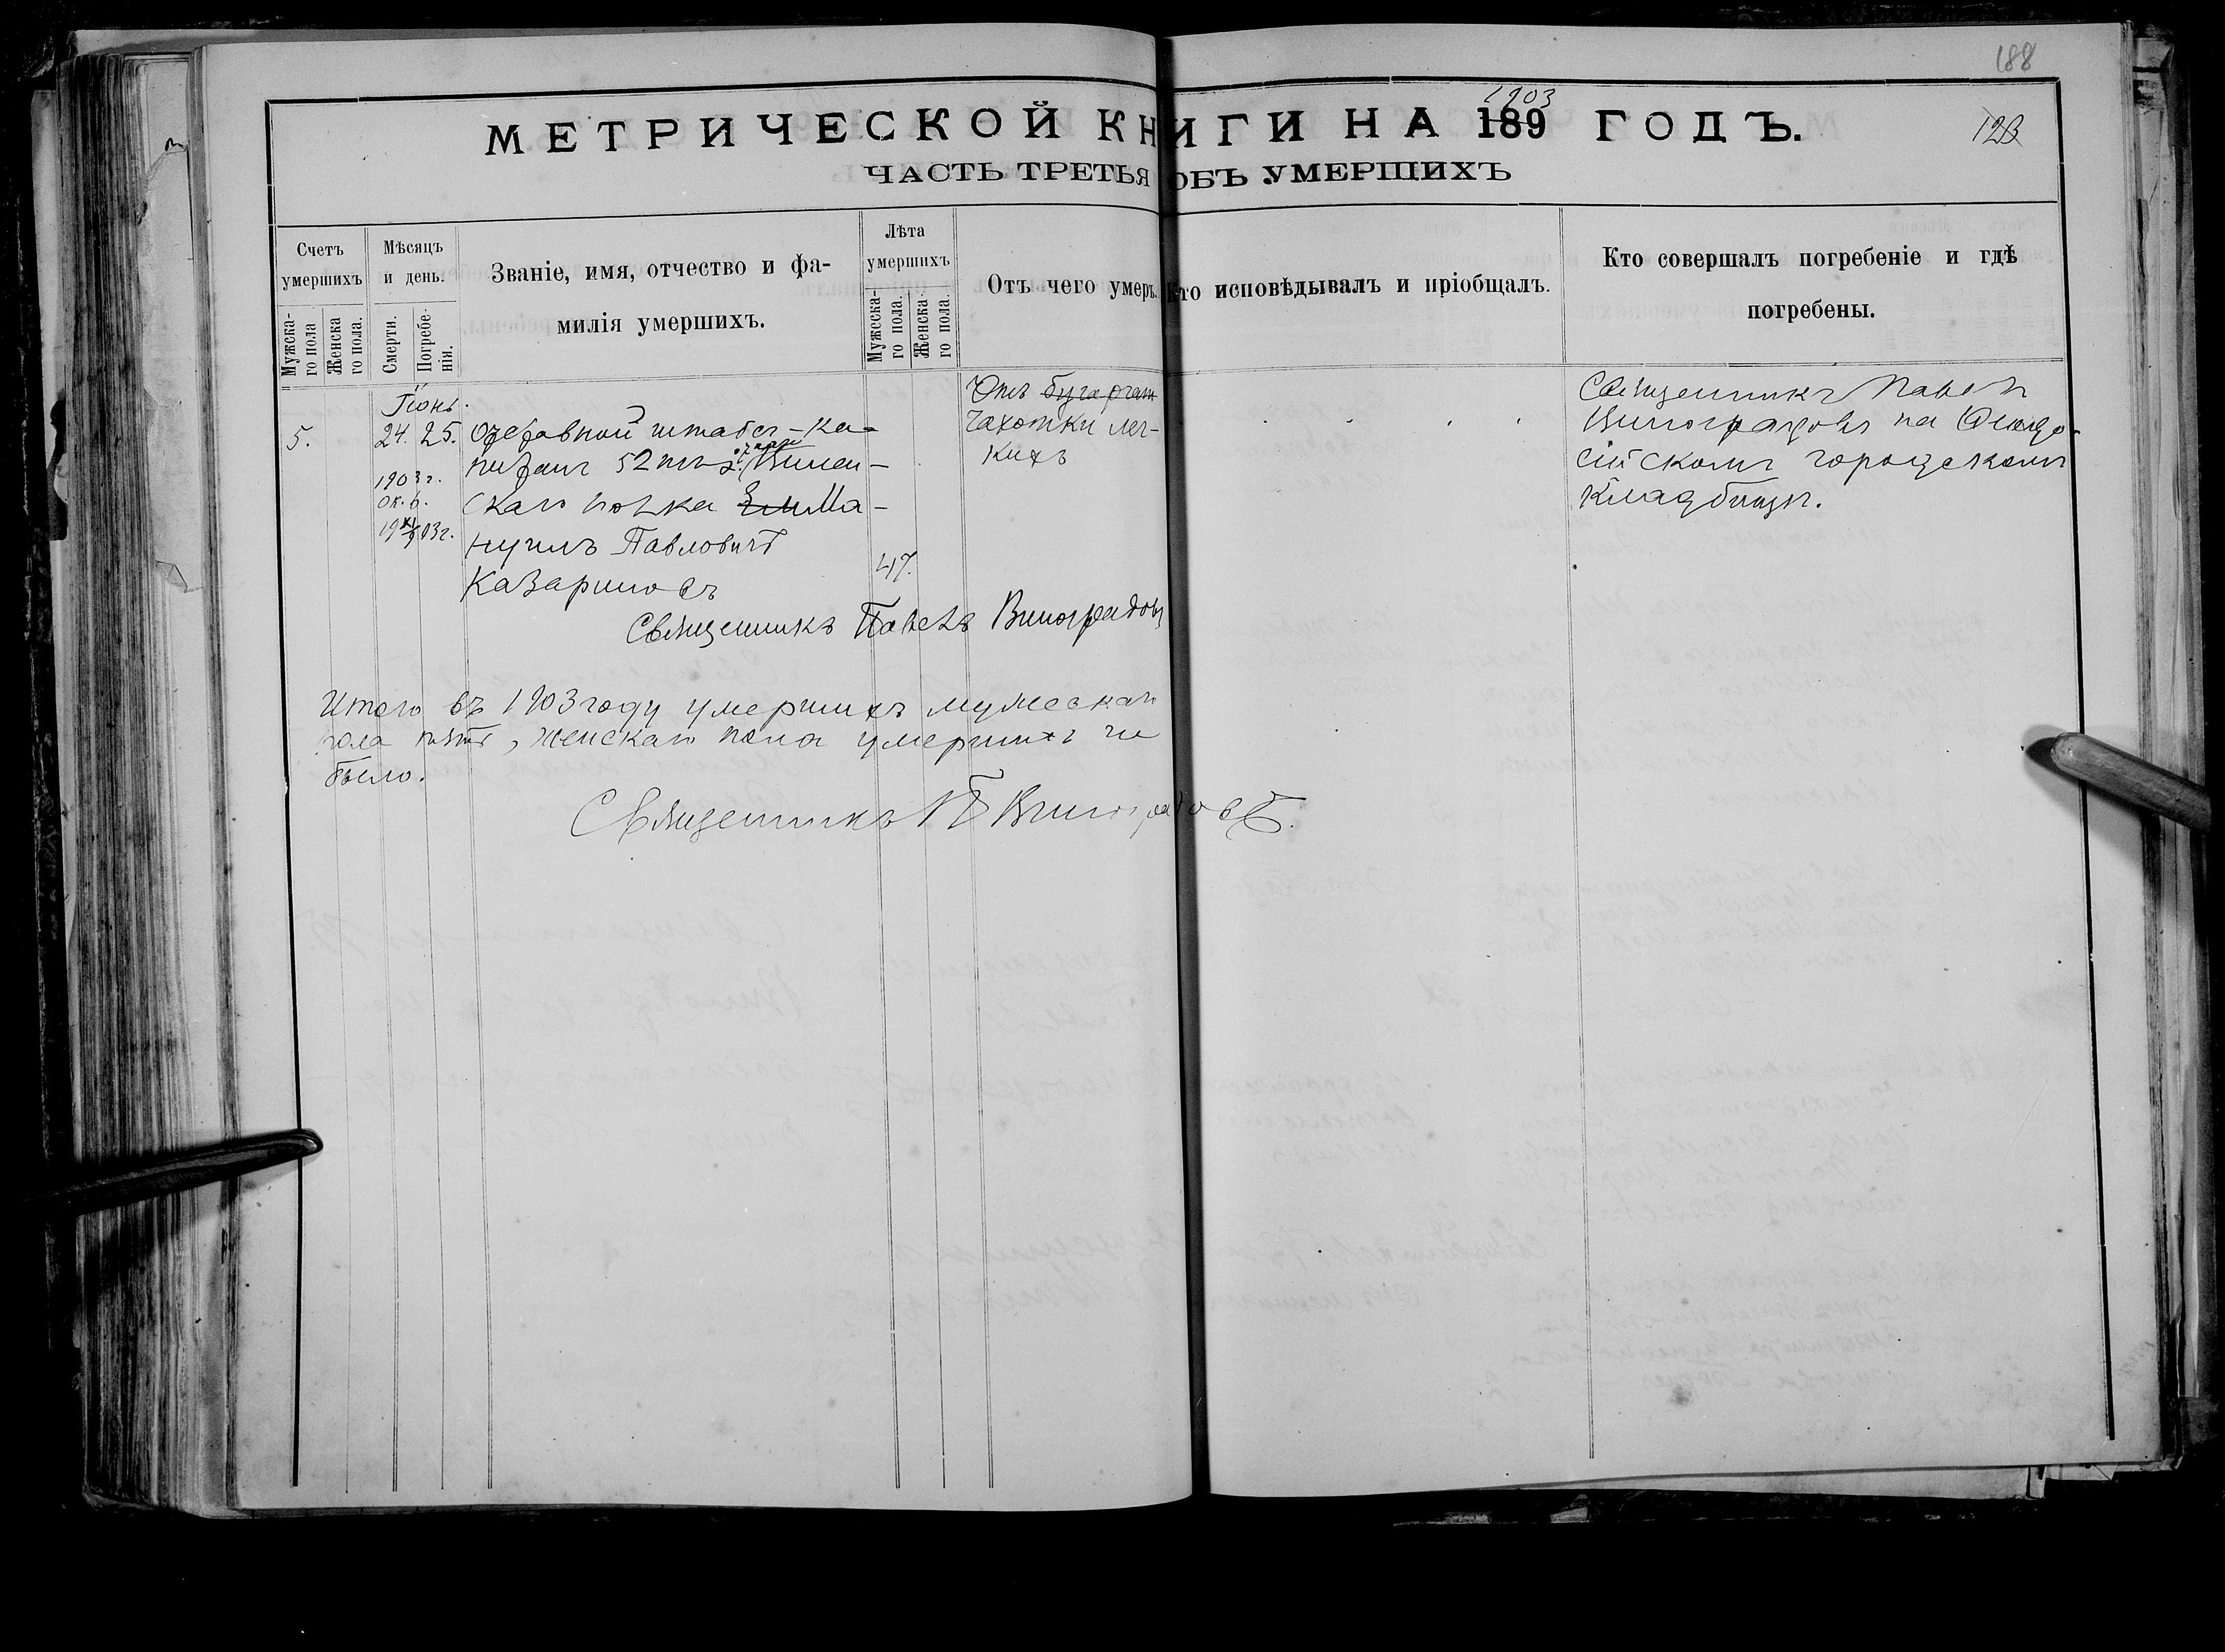 188
1903
МЕТРИЧЕСКОЙ КНИГИ НА 189 ГОДЪ.
123
ЧАСТЬ ТРЕТЬЯ ОБЪ УМЕРШИХЪ
Счетъ умершихъ
Мужска-го пола
Женска го пола.
Мѣсяцъ и день.
Смерти.
Погребе-нія.
Званіе, имя, отчество и фа-
милія умершихъ.
Лѣта умершихъ
Мужеска-го пола.
Женска-го пола.
Отъ чего умеръ.
Кто исповѣдывалъ и пріобщалъ.
Кто совершалъ погребеніе и гдѣ
погребены.
Іюнь.
5.
24. 25.
1903 г.
19 03 г.
штабсъ-ка-
питанъ 52 Вилен-
скаго полка Ма-
нуилъ Павловичъ
Казариновъ
47.
Отъ
Чахотки лег-
кихъ
Священникъ Павелъ
Виноградовъ на Ѳеодо-
сійскомъ городскомъ
кладбищѣ.
Священникъ Павелъ Виноградовъ
Итого въ 1903 году умершихъ мужескаго
пола пять, женскаго пола умершихъ не
было.
Священникъ П Виноградовъ.